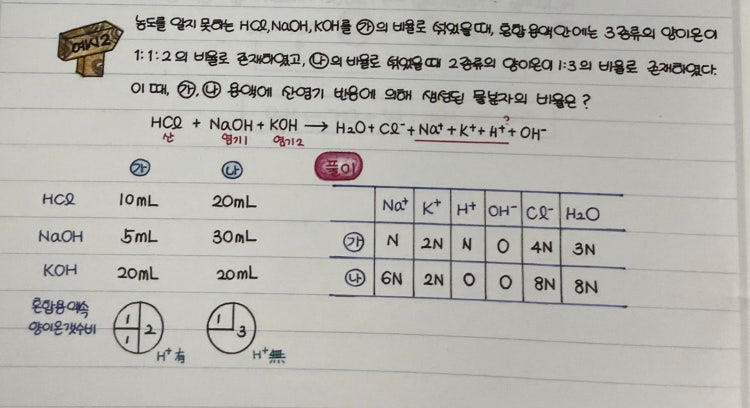 예시2
농도를 알지 못하는 HCl, NaOH, KOH를 ㉮의 비율로 섞었을 때, 혼합 용액 안에는 3종류의 양이온이
1:1:2의 비율로 존재하였고, ㉯의 비율로 섞었을 때 2종류의 양이온이 1:3의 비율로 존재하였다.
이 때, ㉮, ㉯ 용액에 산염기 반응에 의해 생성된 물분자의 비율은?
HCl + NaOH + KOH → H2O + Cl- + Na+ + K+ + H+ + OH-
?
산 염기1 염기2
㉮ ㉯
HCl 10mL 20mL
NaOH 5mL 30mL
KOH 20mL 20mL
혼합용액속
양이온갯수비
1 1 2
H+有
1 3
H+無
풀이
Na+ K+ H+ OH- Cl- H2O
㉮ N 2N N 0 4N 3N
㉯ 6N 2N 0 0 8N 8N